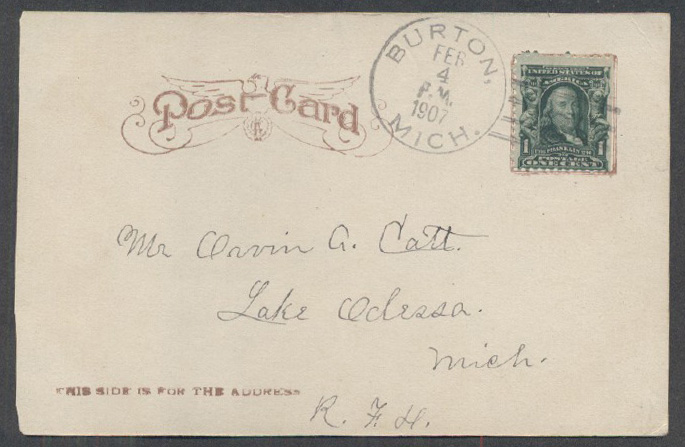 Post Card
BURTON,
FEB
4
P.M.
1907
MICH.
UNITED STATES OF
AMERICA
1 1
FRANKLIN
POSTAGE
ONE CENT
Mr Orvin A. Catt.
Lake Odessa.
Mich.
THIS SIDE IS FOR THE ADDRESS
R. F. D.